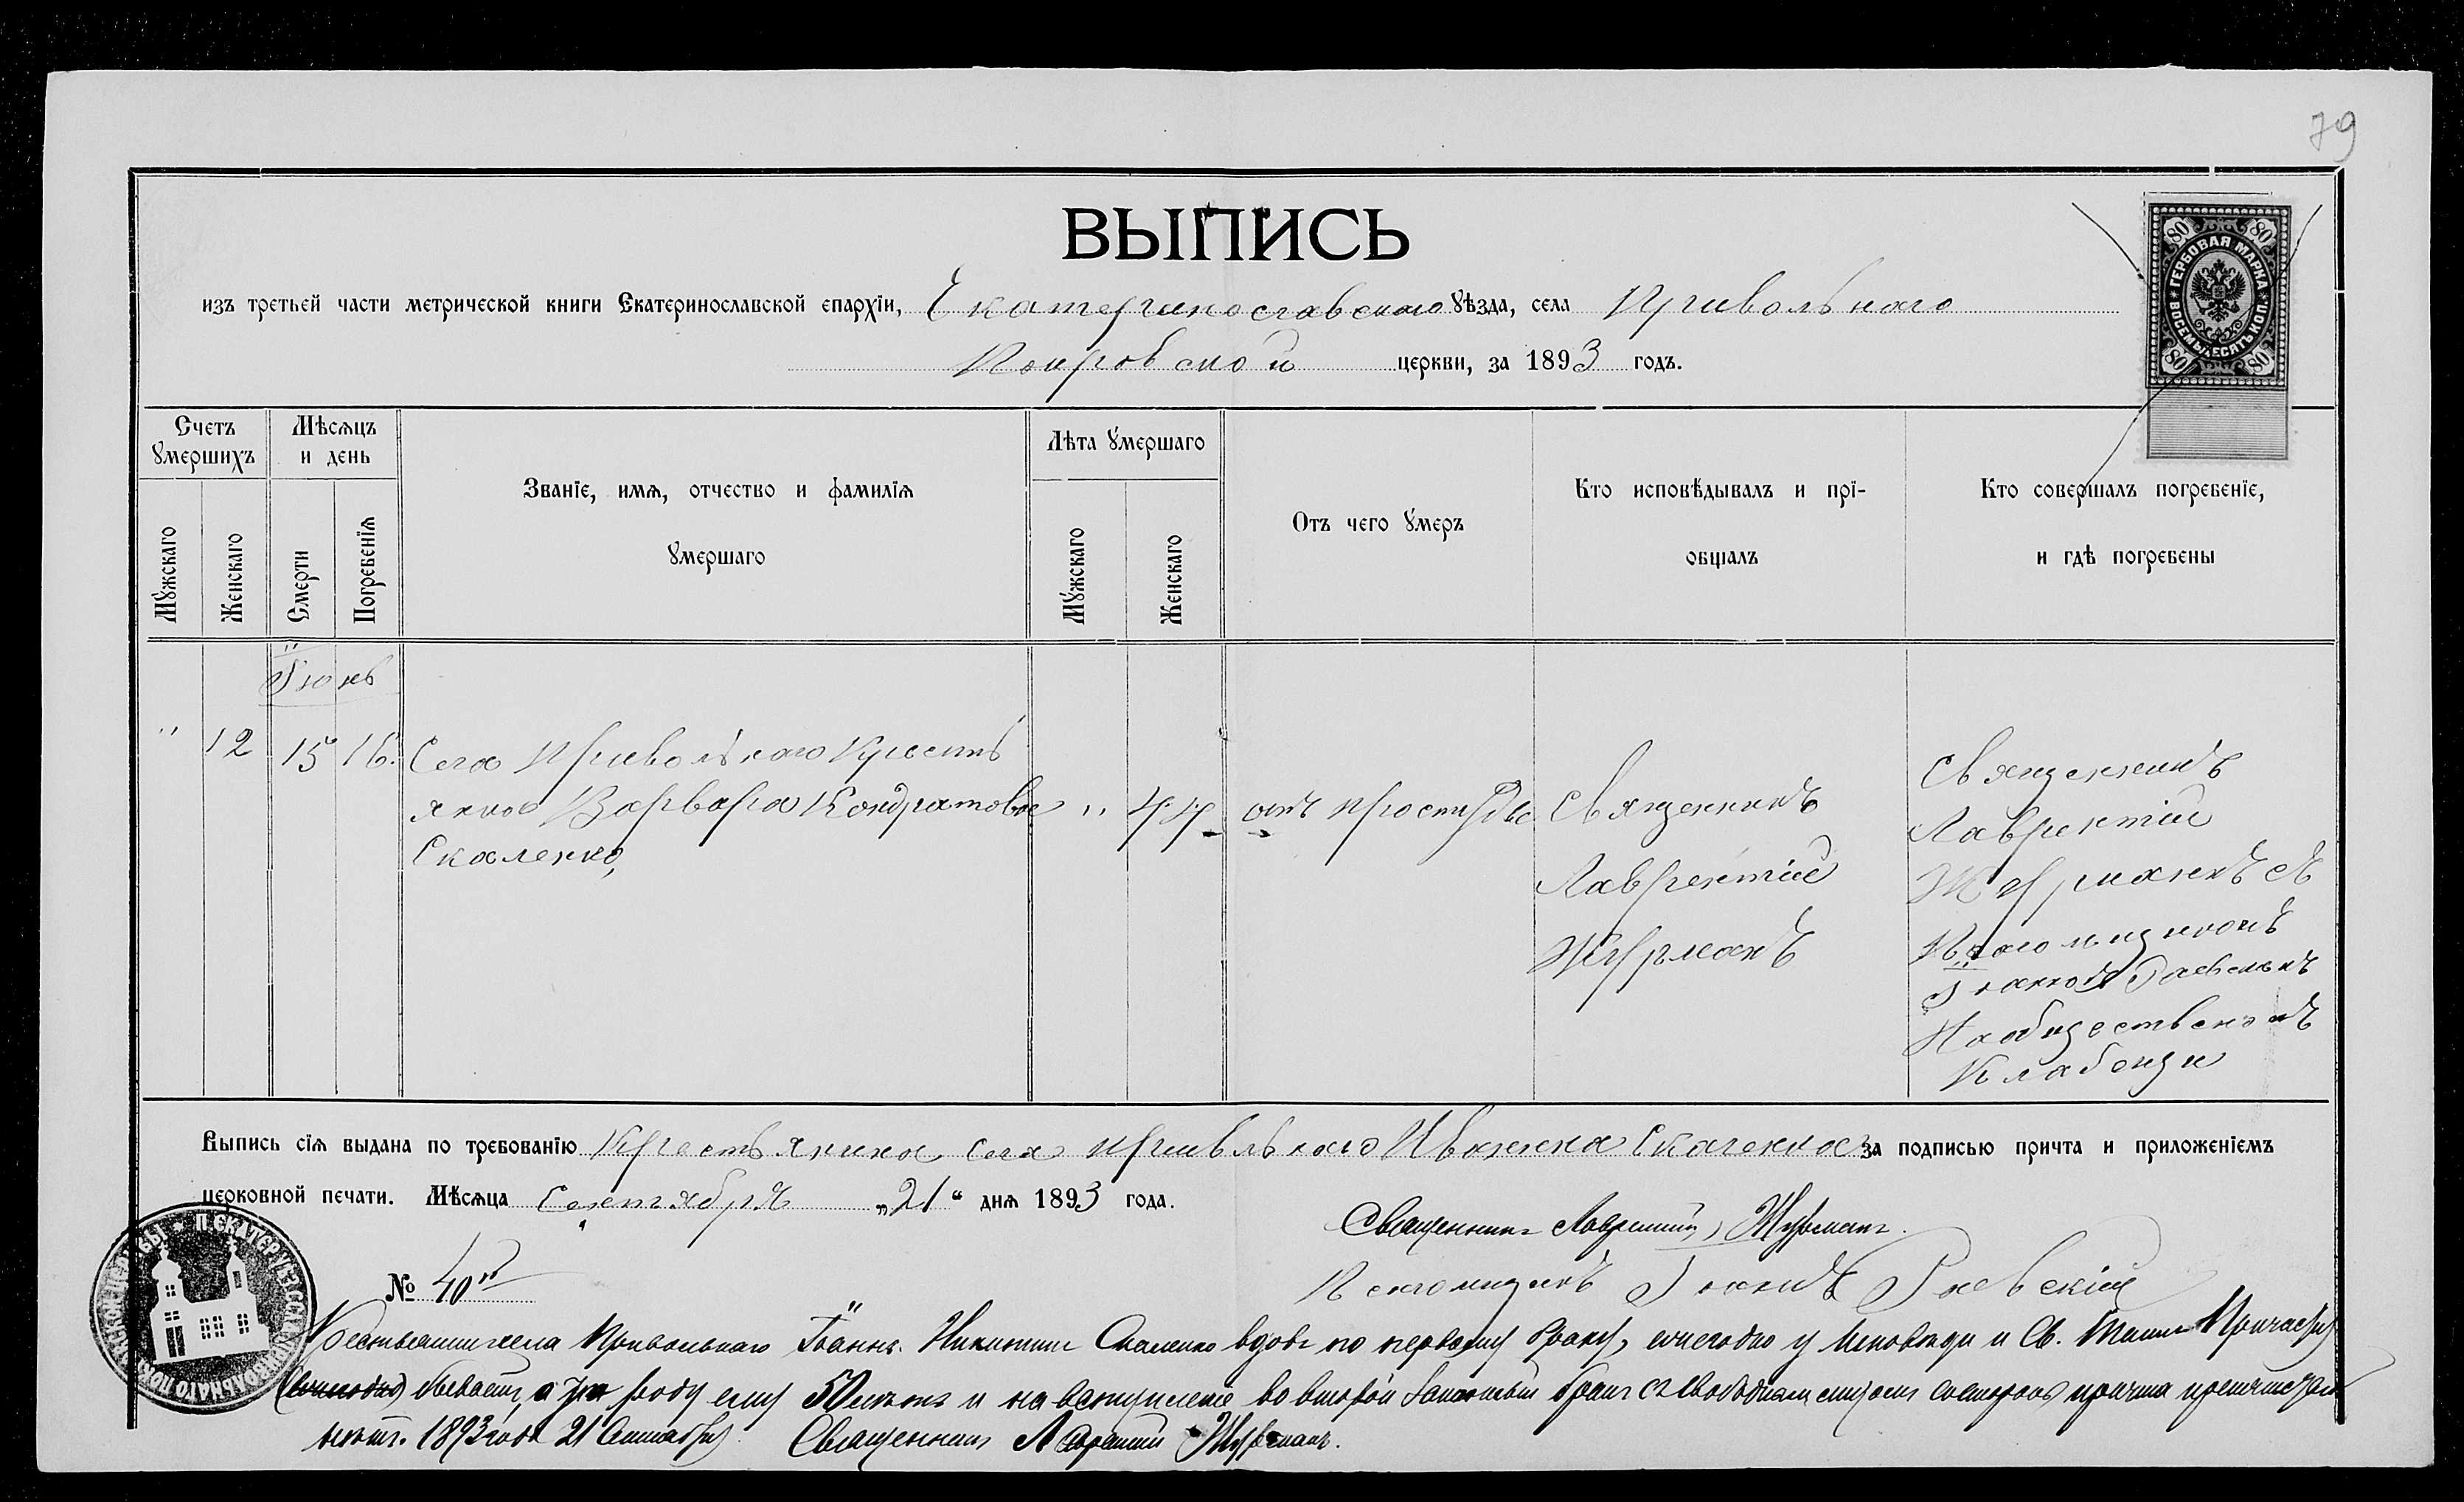 79
ВЫПИСЬ
изъ третьей части метрической книги Екатеринославской епархіи, Екатеринославскаго уѣзда, села Привольнаго
Покровской церкви, за 1893 годъ.
ГЕРБОВАЯ МАРКА
ВОСЕМЬДЕСЯТЪ КОП.
80 80
80 80
Счетъ умершихъ
Мужскаго
Женскаго
Мѣсяцъ и день
Смерти
Погребенія
Званіе, имя, отчество и фамилія
умершаго
Лѣта умершаго
Мужскаго
Женскаго
Отъ чего умеръ
Кто исповѣдывалъ и прі-
общалъ
Кто совершалъ погребеніе,
и гдѣ погребены
Іюнь
" 12 15 16.
Села Привольнаго Кресть
янка Варвара Кондратова
Скаленко,
" 44
отъ простуды
Священникъ
Лаврентій
Журманъ
Священникъ
Лаврентій
Журманъ съ
Псаломщикомъ
Іоанномъ Раевскимъ
На общественомъ
Кладбищи
Выпись сія выдана по требованію Крестьянина села Привольнаго Ивана Скаленка за подписью причта и приложеніемъ
церковной печати. Мѣсяца Сентября „21“ дня 1893 года.
Священникъ Лаврентій Журманъ.
№ 40й
Псаломщикъ Іоаннъ Раевскій
Крестьянинъ села Привольнаго Іоаннъ Никитинъ Скаленко вдовъ по первому браку, ежегодно у Исповѣди и Св. Таинъ Причастія
(ежегодно) бываетъ, а роду ему 50 и на вступленіе во второй законный бракъ со стороны причта препятствій
1893 года 21 Сентября Священникъ Лаврентій Журманъ.